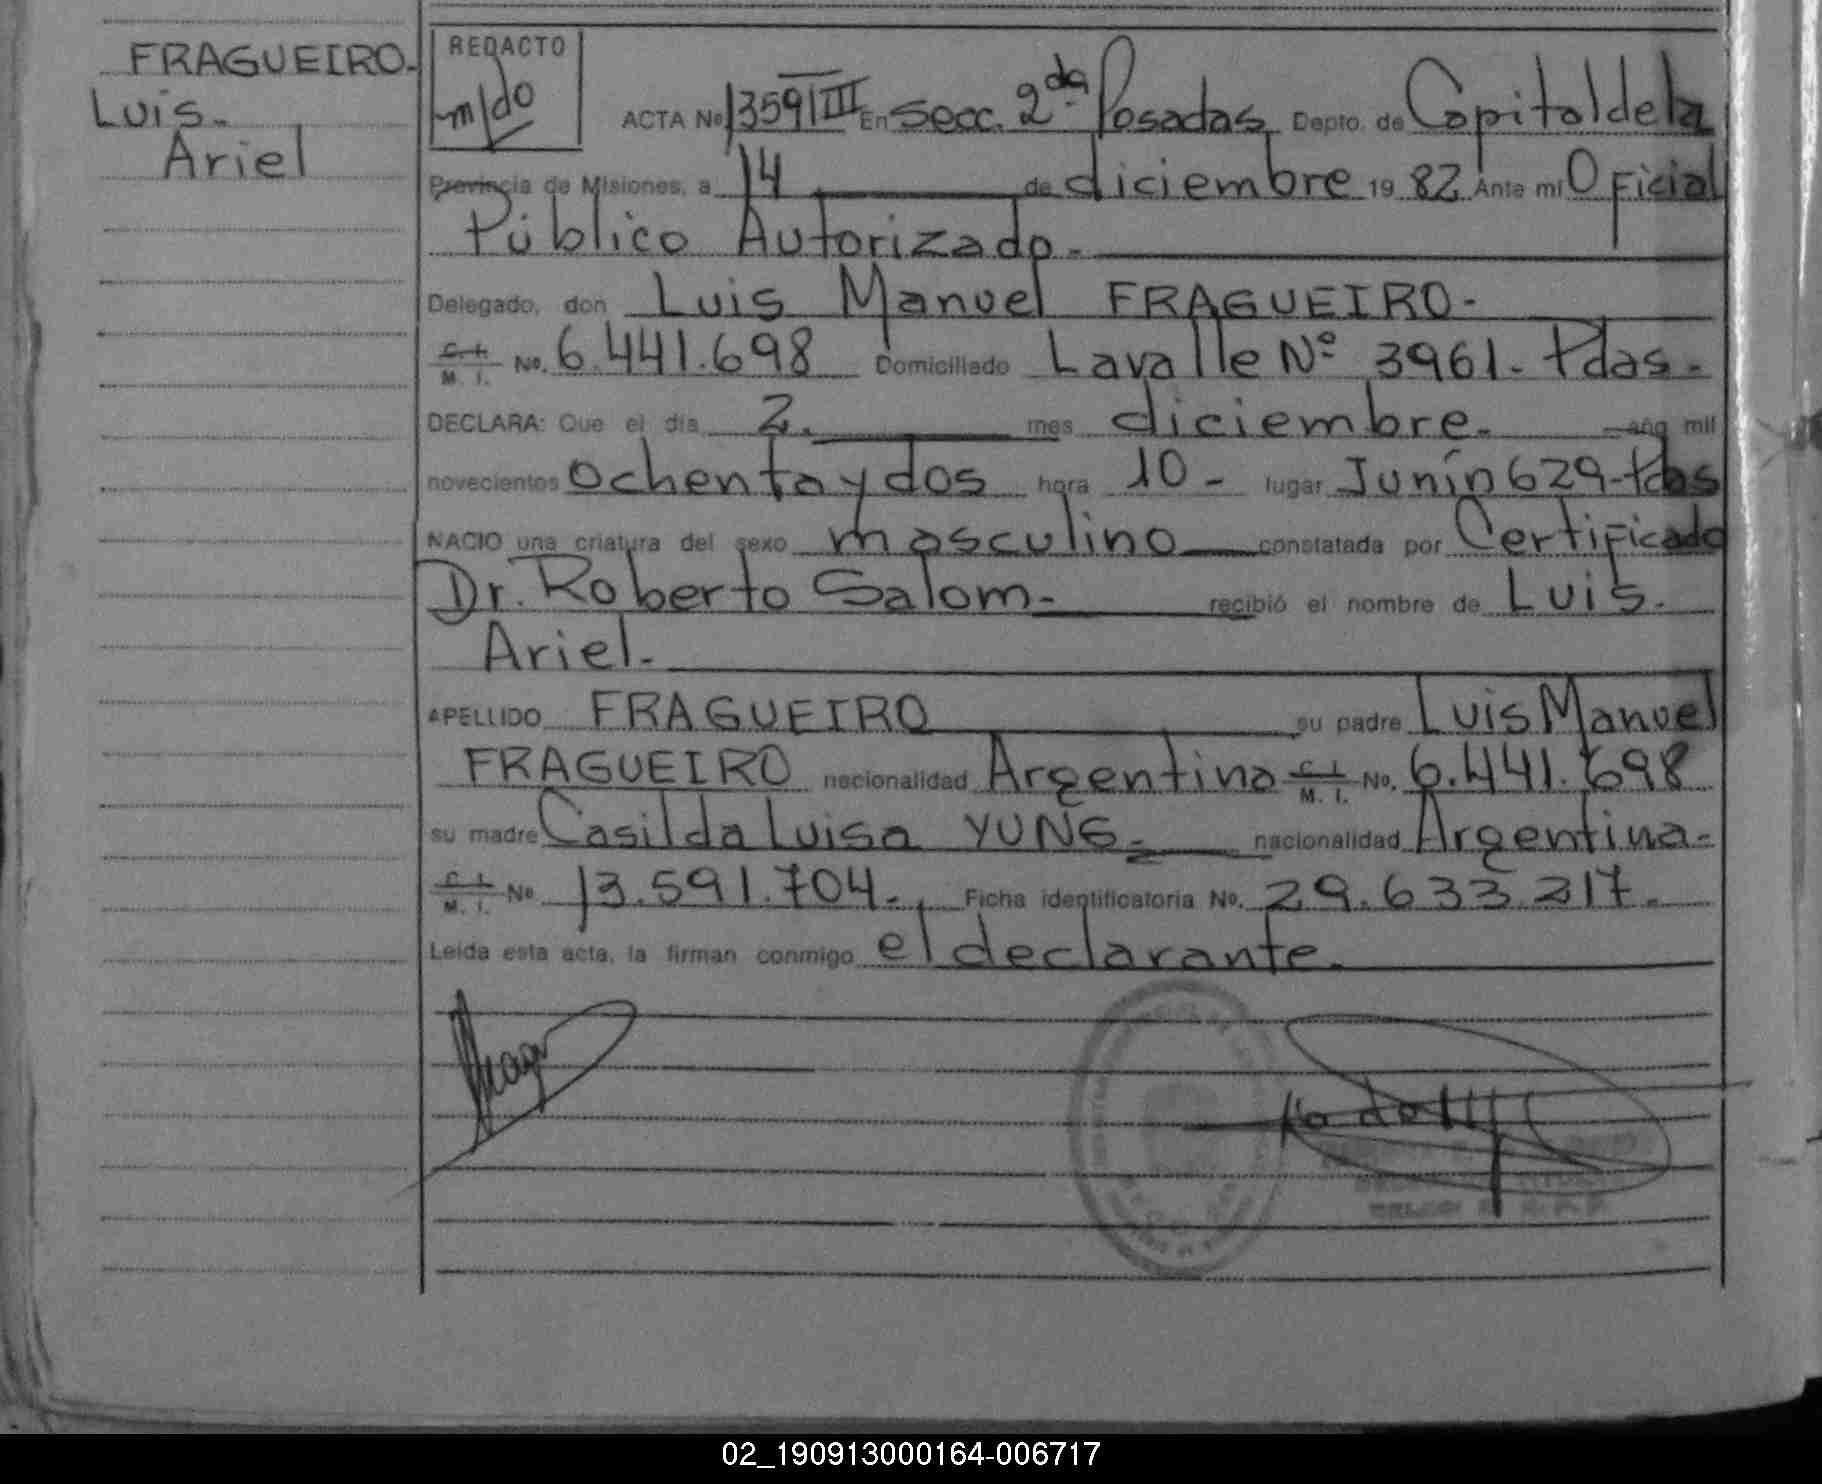 FRAGUEIRO.
Luis.
Ariel
REDACTO
m/do
ACTA No 1359/III En Secc. 2da Posadas Depto. de Capital de la
Provincia de Misiones, a 14 de diciembre 1982 Ante mi Oficial
Público Autorizado.-
Delegado, don Luis Manuel FRAGUEIRO-
C. I. M. I. No. 6.441.698 Domiciliado Lavalle Nº 3961- Pdas.-
DECLARA: Que el día 2. mes diciembre. año mil
novecientos ochenta y dos hora 10- lugar Junín 629-Pdas
NACIO una criatura del sexo masculino constatada por Certificado
Dr. Roberto Salom- recibió el nombre de Luis.
Ariel.-
APELLIDO FRAGUEIRO su padre Luis Manuel
FRAGUEIRO nacionalidad Argentino C. I. M. I. No. 6.441.698
su madre Casilda Luisa YUNG.- nacionalidad Argentina.-
C. I. M. I. No 13.591.704.- Ficha identificatoria No. 29.633.217.-
Leída esta acta, la firman conmigo el declarante.
02_190913000164-006717